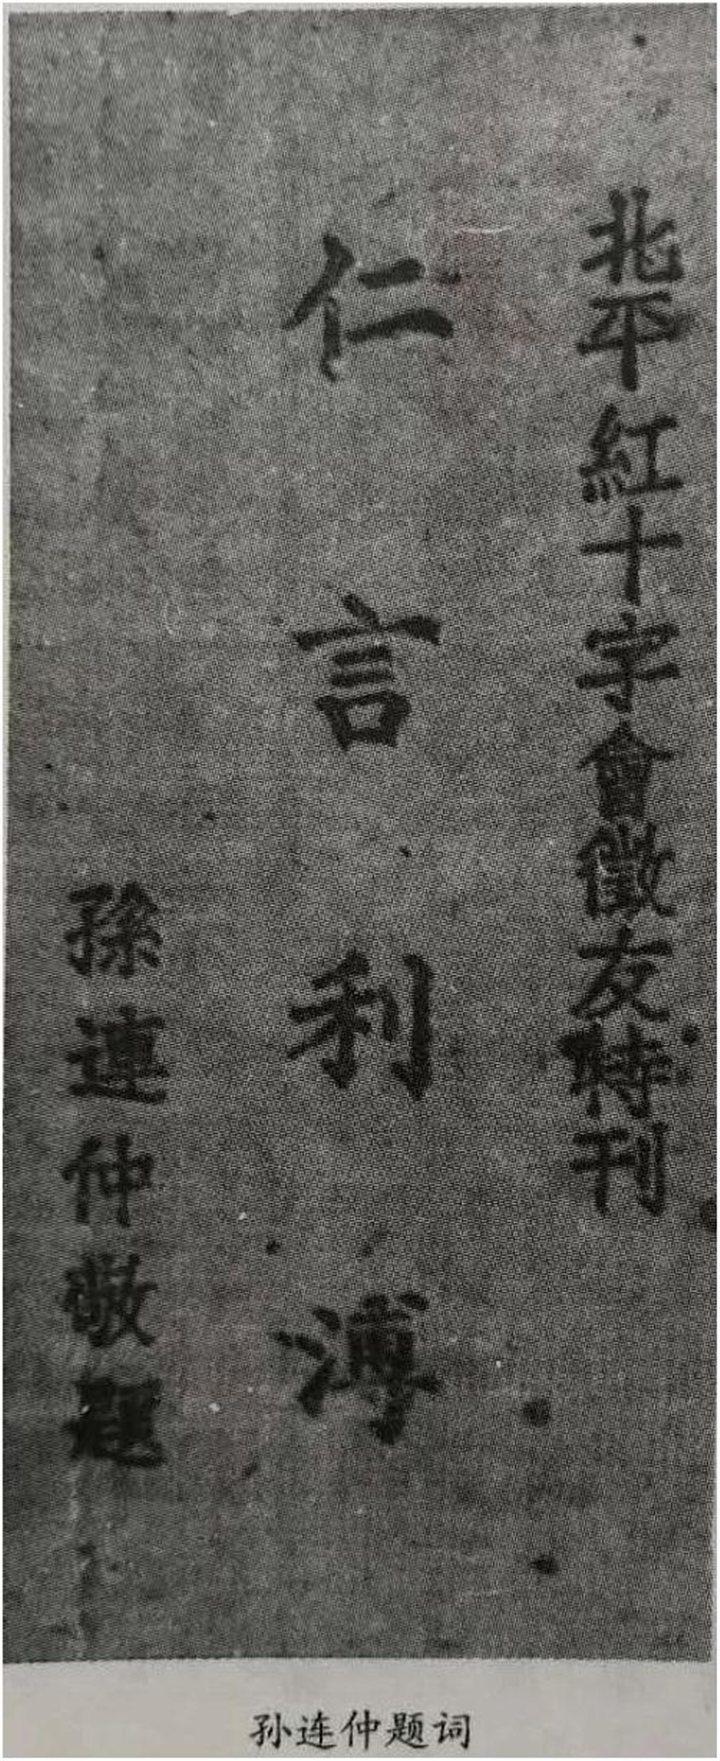 北平紅十字會徵友特刊
仁言利溥
孫連仲敬題
孙连仲题词